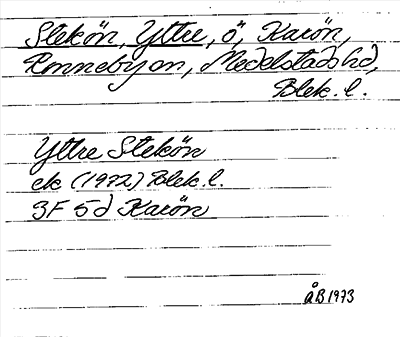 Stekön, Yttre, ö, Karön,
Ronnebyon, Medelstads hd,
Blek. l.
Yttre Stekön
ek (1972) Blek. l.
3F 5d Karön
ÅB 1973